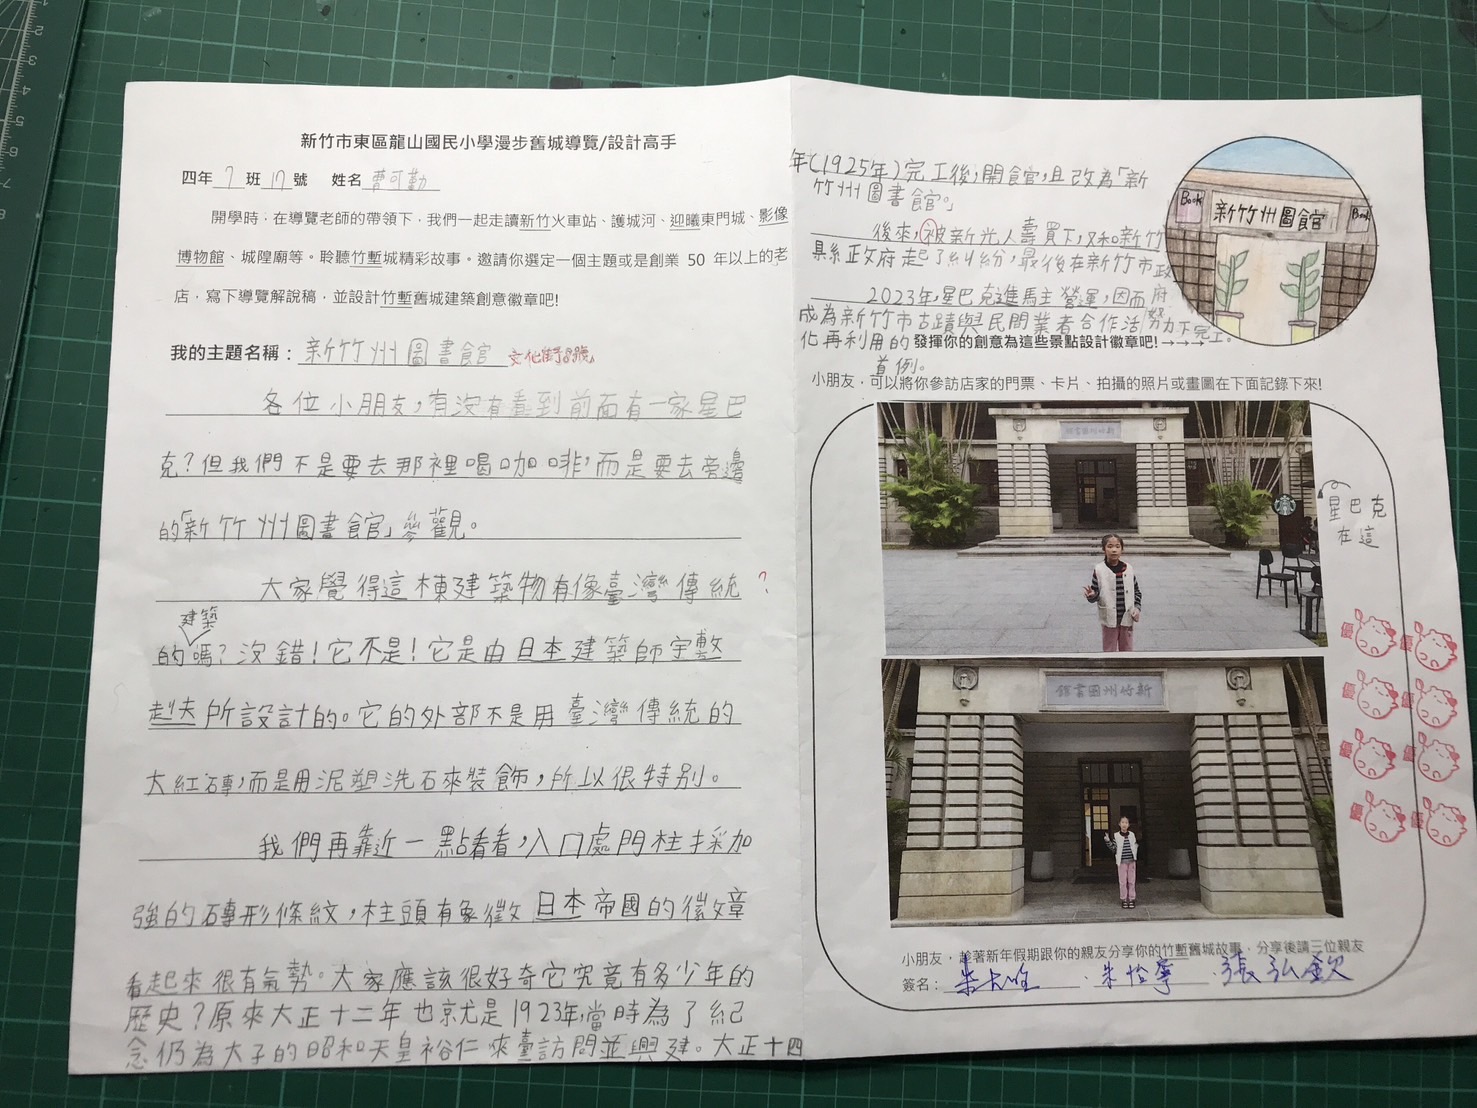 新竹市東區龍山國民小學漫步舊城導覽/設計高手
四年 7 班 17 號 姓名 曹可勤
開學時，在導覽老師的帶領下，我們一起走讀新竹火車站、護城河、迎曦東門城、影像
博物館、城隍廟等。聆聽竹塹城精彩故事。邀請你選定一個主題或是創業 50 年以上的老
店，寫下導覽解說稿，並設計竹塹舊城建築創意徽章吧!
我的主題名稱：新竹州圖書館
各位小朋友，有沒有看到前面有一家星巴
克？但我們不是要去那裡喝咖啡，而是要去旁邊
的「新竹州圖書館」參觀。
大家覺得這棟建築物有像臺灣傳統 ?
建築
的嗎？沒錯！它不是！它是由日本建築師宇敷
赳夫所設計的。它的外部不是用臺灣傳統的
大紅磚，而是用泥塑洗石來裝飾，所以很特別。
我們再靠近一點看看，入口處門柱採加
強的磚形條紋，柱頭有象徵日本帝國的徽章
看起來很有氣勢。大家應該很好奇它究竟有多少年的
歷史？原來大正十二年也就是1923年，當時為了紀
念仍為太子的昭和天皇裕仁來臺訪問並興建。大正十四
年（1925年）完工後，開館，且改為「新
竹州圖書館。」
後來，被新光人壽買下，又和新竹
縣系正政府起了糾紛，最後在新竹市政
府
努
力下完工。
2023年，星巴克進駐主營運，因而
成為新竹市古蹟與民間業者合作活
化再利用的
首例。
Book
新竹州圖館
Book
發揮你的創意為這些景點設計徽章吧!→→→
小朋友，可以將你參訪店家的門票、卡片、拍攝的照片或畫圖在下面記錄下來!
新竹州圖書館
星巴克
在這
新竹州圖書館
優 優
優 優
優 優
優 優
小朋友，趁著新年假期跟你的親友分享你的竹塹舊城故事，分享後請三位親友
簽名： 朱怡寧 張弘欽